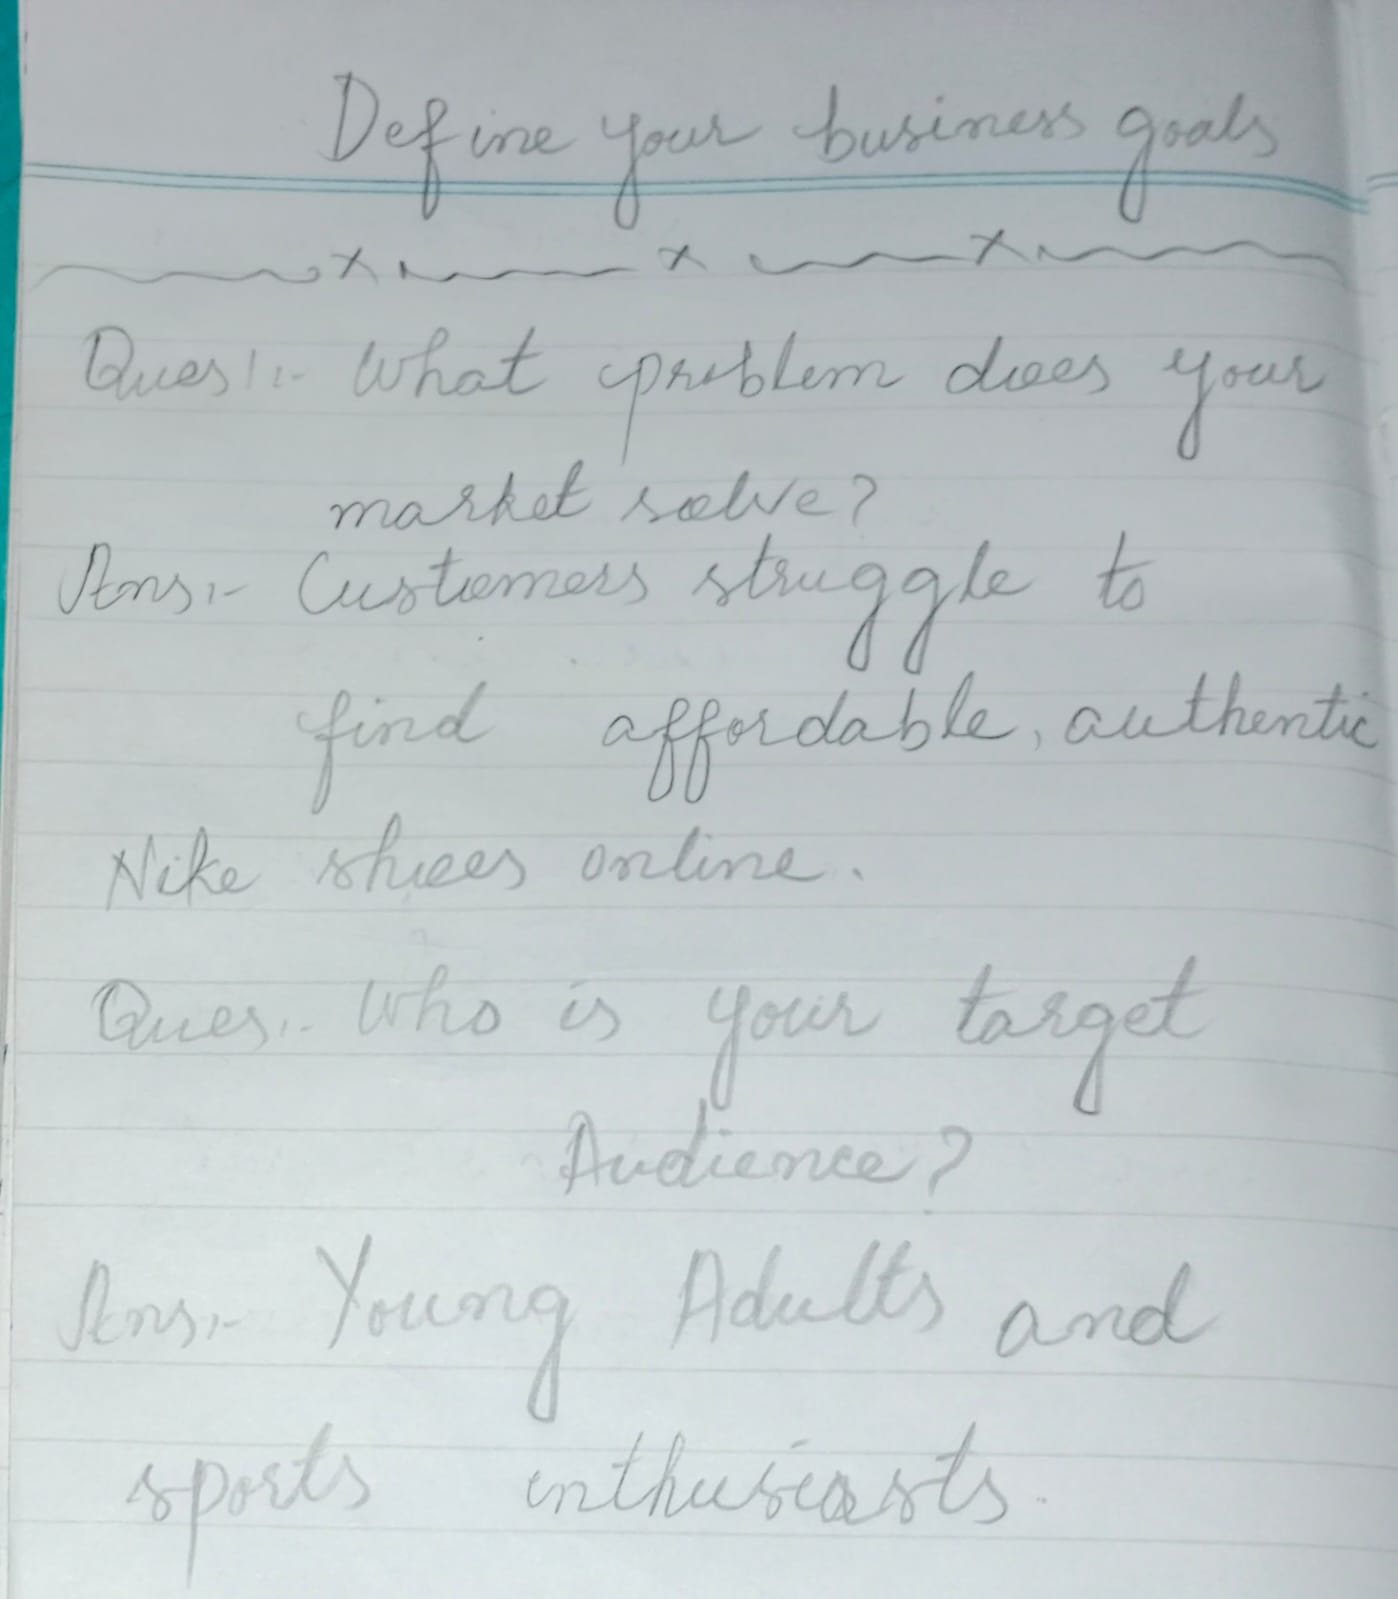 Define your business goals
Ques1:- What problem does your
market solve?
Ans:- Customers struggle to
find affordable, authentic
Nike shoes online.
Ques:- Who is your target
Audience?
Ans:- Young Adults and
sports enthusiasts.